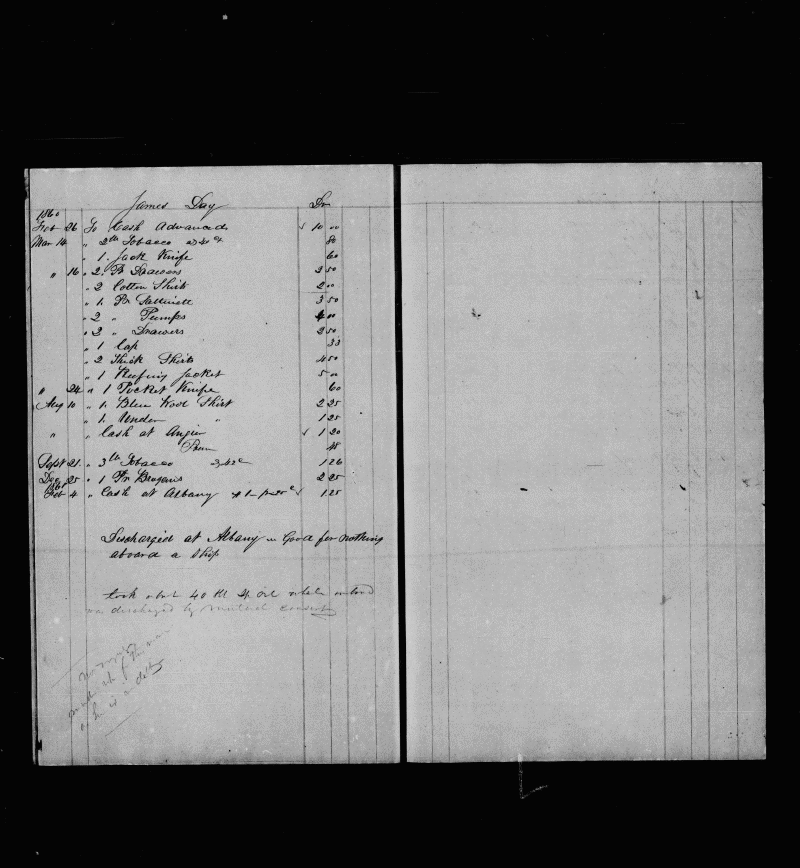 James Day Dr
1860
Feb 26 To Cash Advanced √ 10 00
Mar 14 " 2 lb Tobacco @ 40 cts 80
" 1 Jack Knife 60
" 16 " 2 Pr Drawers 3 50
" 2 Cotton Shirts 2 00
" 1 Pr Sattinett 3 50
" 2 " Pumps 4 00
" 2 " Drawers 2 50
" 1 Cap 33
" 2 Thick Shirts 4 50
" 1 Reefing Jacket 5 00
" 24 " 1 Pocket Knife 60
Aug 10 " 1 Blue Wool Shirt 2 25
" 1 Under " 1 25
" " Cash at Angier √ 1 20
Prem 48
Sept 21 " 3 lb Tobacco @ 42 c 1 26
Dec 25 " 1 Pr Brogans 2 25
1861
Feb 4 " Cash at Albany √ 1 25
Discharged at Albany Good for nothing
aboard a Ship
took about 40 oil while on board
was discharged by mutual consent
of this man
as he is in debt